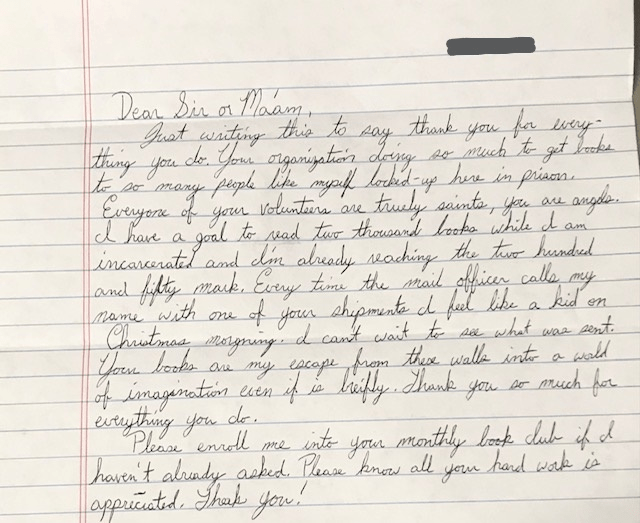 Dear Sir or Ma'am,
Just writing this to say thank you for every-
thing you do. Your organization doing so much to get books
to so many people like myself locked-up here in prison.
Everyone of your volunteers are truely saints, you are angels.
I have a goal to read two thousand books while I am
incarcerated and I'm already reaching the two hundred
and fifty mark. Every time the mail officer calls my
name with one of your shipments I feel like a kid on
Christmas morgning. I can't wait to see what was sent.
Your books are my escape from these walls into a wold
of imagination even if is breifly. Thank you so much for
everything you do.
Please enroll me into your monthly book club if I
haven't already asked. Please know all your hard work is
appreciated. Thank You!